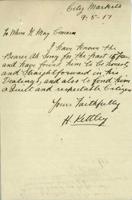 City Markets
9-5-17
To Whom It May Concern
I have known the
Bearer Ah Song for the past 15 years
and have found him to be honest
and Straightforward in his
Dealings, and also to find him
a Quiet and respectable Citizen
Yours Faithfully
H. Kettley